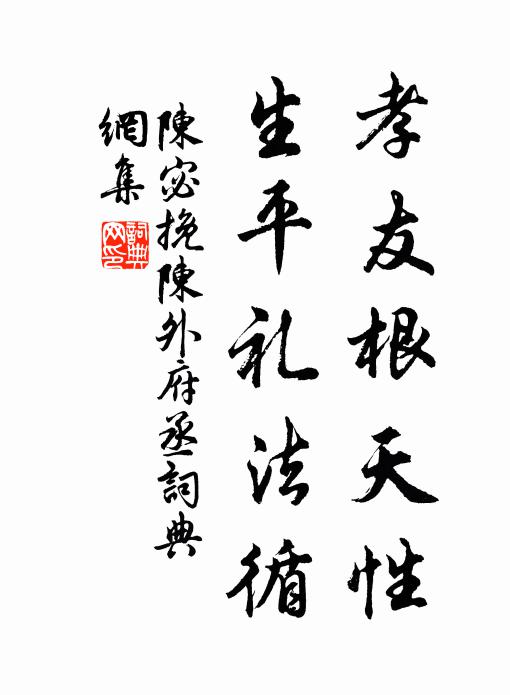 孝友根天性
生平礼法循
陳宓挽陳外府丞詞典
網集
詞典
网印